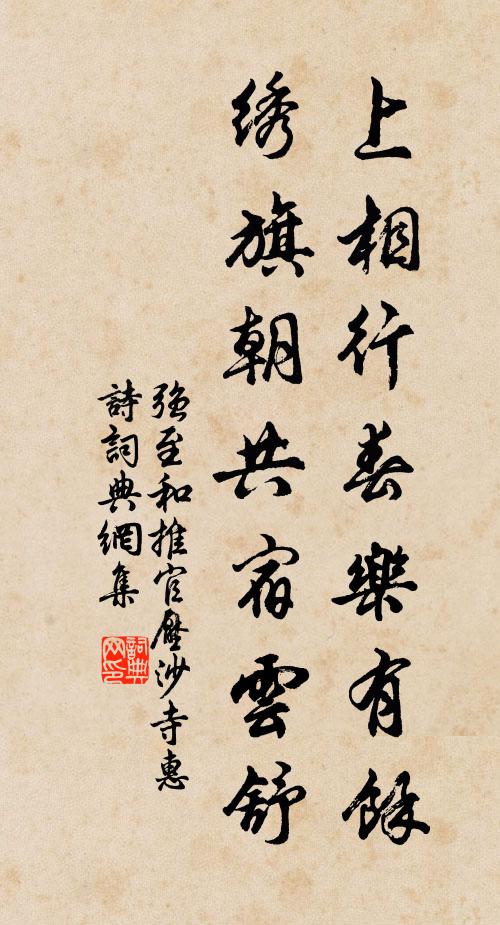 上相行春樂有餘
綉旗朝共宿雲舒
強至和推官壓沙寺惠
詩詞典網集
詞典網印